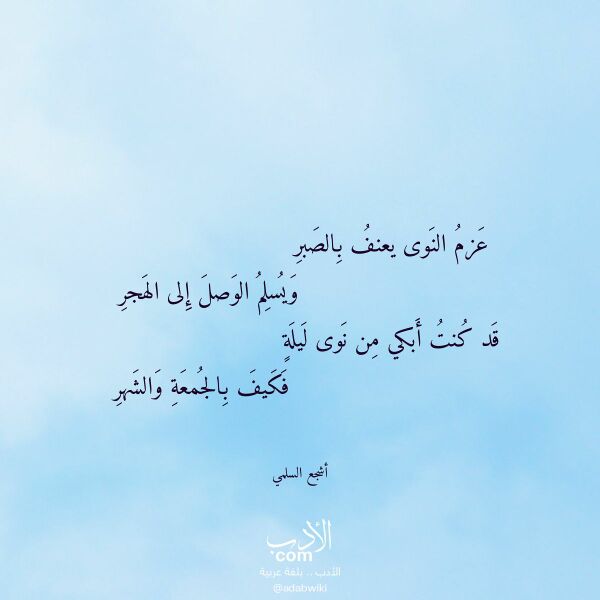 عَزمُ النَوى يعنفُ بِالصَبرِ
وَيُسلِمُ الوَصلَ إِلى الهَجرِ
قَد كُنتُ أَبكي مِن نَوى لَيلَةٍ
فَكَيفَ بِالجُمعَةِ وَالشَهرِ
أشجع السلمي
الأدب
com
الأدب .. بلغة عربية
@adabwiki